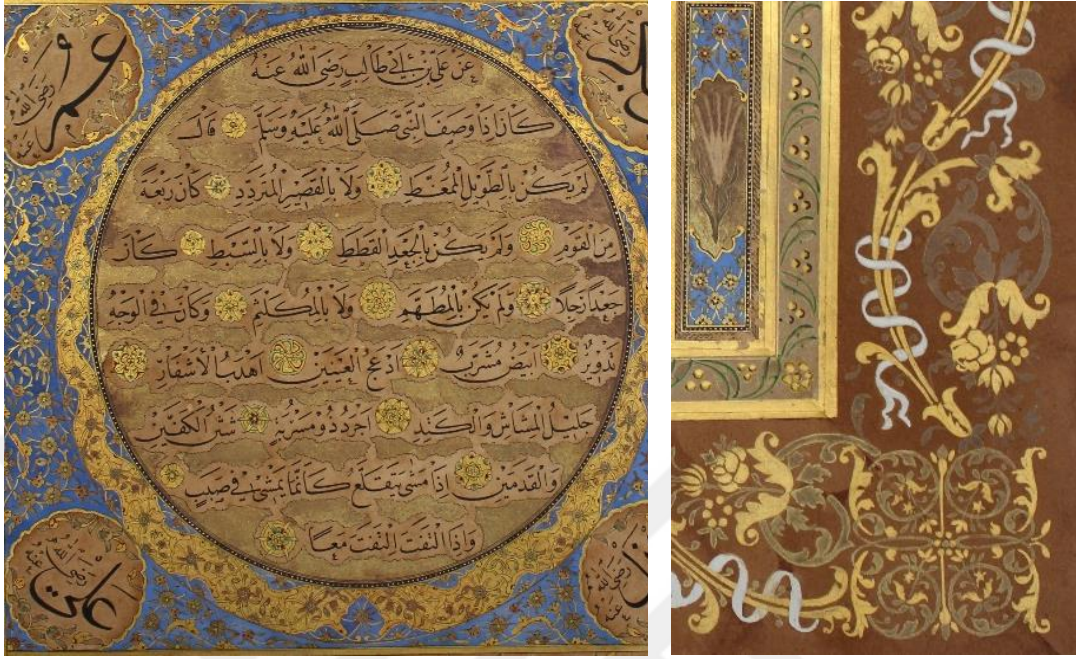 عن علي بن أبي طالب رضي الله عنه
كان إذا وصف النبي صلى الله عليه وسلم قال
لم يكن بالطويل الممغط ولا بالقصير المتردد كان ربعة
من القوم ولم يكن بالجعد القطط ولا بالسبط كان
جعدا رجلا ولم يكن بالمطهم ولا بالمكلثم وكان في الوجه
تدوير ابيض مشرب ادعج العينين اهدب الأشفار
جليل المشاش والكتد اجرد ذو مسربة شثن الكفين
والقدمين اذا مشى يتقلع كأنما يمشي في صبب
واذا التفت التفت معا
عمر
رضي الله عنه
علي
رضي الله عنه
رضي الله
رضي الله عنه